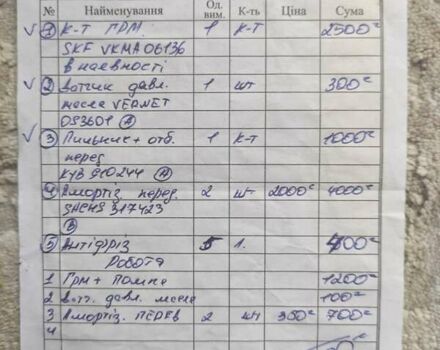 № Найменування Од. вим. К-ть Ціна Сума
1 К-т ГРМ 1 К-т 2500
SKF VKMA 06136
в наявності
2 Датчик давл. 1 шт 300
масла VERNET
OS3601 A
3 Пильник + отб. 1 К-т 1000
перед
KYB 910244 A
4 Амортіз. перед. 2 шт 2000 4000
SACHS 317423
B
5 Антіфріз 5 л.
Робота
1 Грм + Помпа 1200
2 дат. давл. масла 100
3 Амортіз. ПЕРЕД 2 700
4